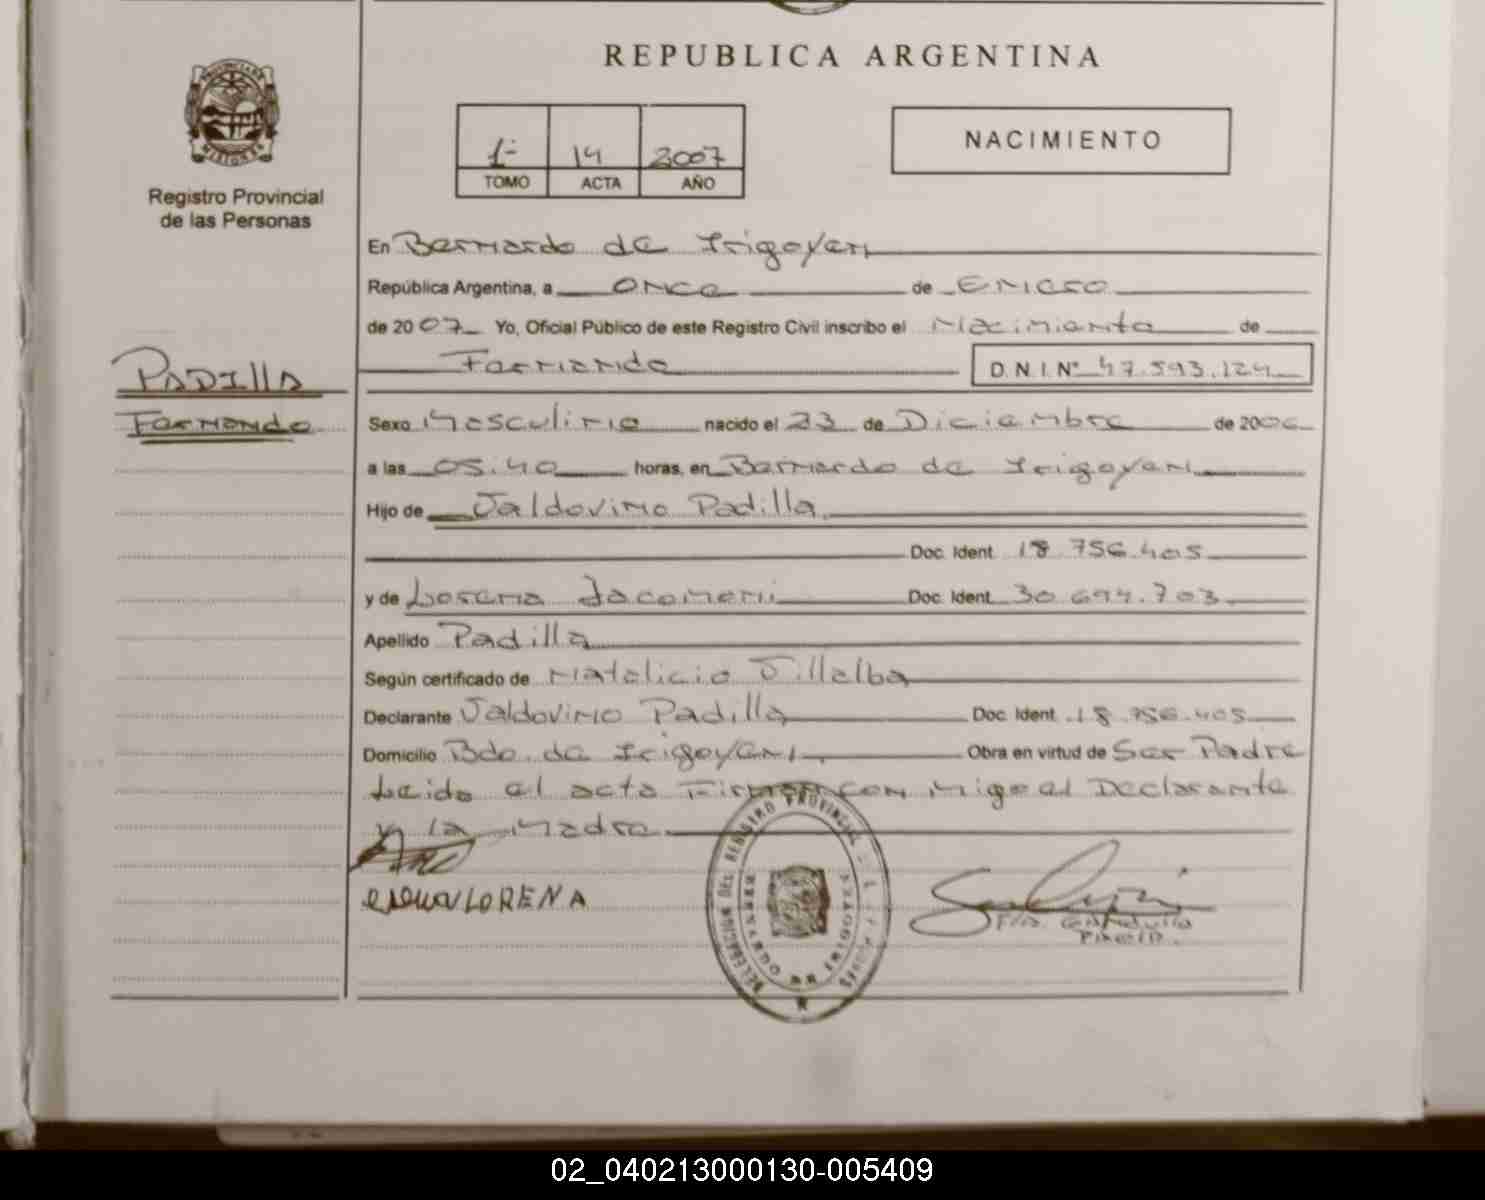 REPUBLICA ARGENTINA
PROVINCIA DE
MISIONES
Registro Provincial
de las Personas
1- 14 2007
TOMO ACTA AÑO
NACIMIENTO
En Bernardo de Irigoyen
República Argentina, a once de Enero
de 2007 Yo, Oficial Público de este Registro Civil inscribo el Nacimiento de
Fernando D.N.I. Nº 47.593.124
PADIllA
Fernando
Sexo Masculino nacido el 23 de Diciembre de 2006
a las 05:40 horas, en Bernardo de Irigoyen
Hijo de Valdovino Padilla
Doc. Ident. 18.756.405
y de Lorena Jacomeni Doc. Ident. 30.694.703
Apellido Padilla
Según certificado de Natalicio Villalba
Declarante Valdovino Padilla Doc. Ident. 18.756.405
Domicilio Bdo. de Irigoyen Obra en virtud de Ser Padre
Leido el acta Firman con migo el Declarante
y la Madre
LORENA
DELEGACION DEL REGISTRO PROVINCIAL DE LAS
BERNARDO DE IRIGOYEN
02_040213000130-005409